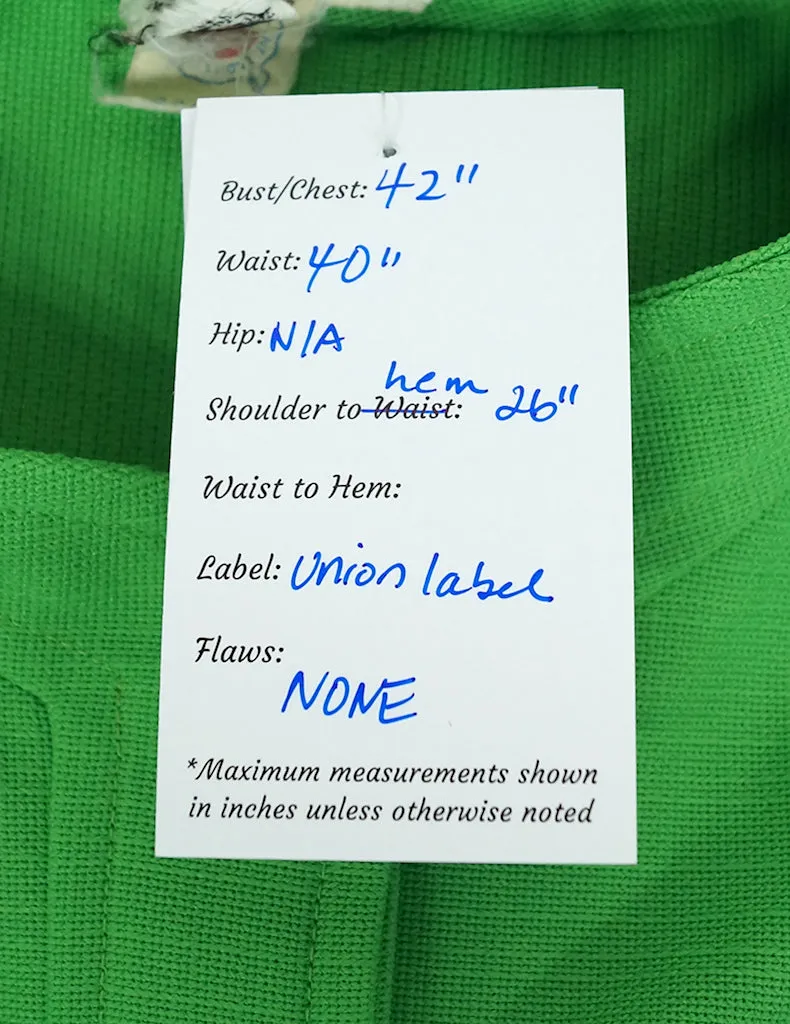 Bust/Chest: 42"
Waist: 40"
Hip: N/A
hem
Shoulder to Waist: 26"
Waist to Hem:
Label: Union label
Flaws:
NONE
*Maximum measurements shown
in inches unless otherwise noted